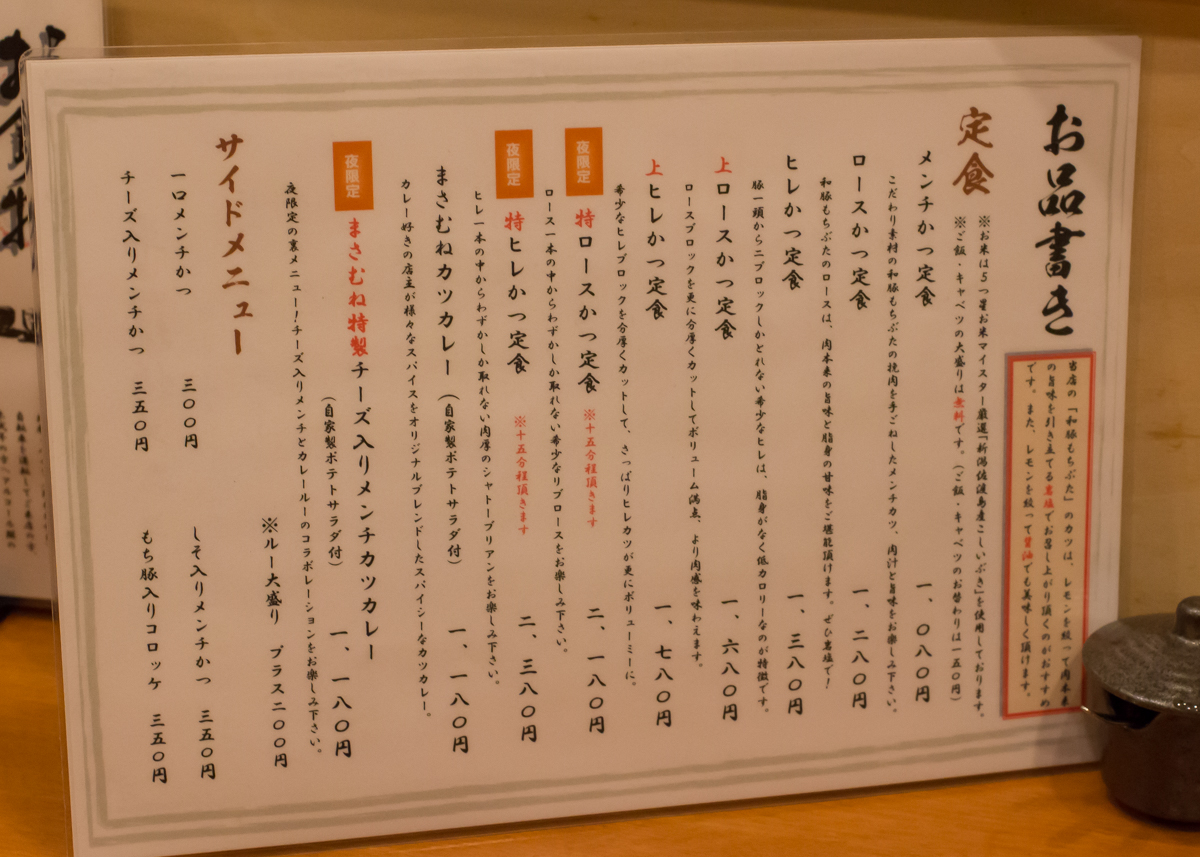 お品書き
当店の「和豚もちぶた」のカツは、レモンを絞って肉本来
の旨味を引き立てる岩塩でお召し上がり頂くのがおすすめ
です。また、レモンを絞って醤油でも美味しく頂けます。
定食
※お米は5つ星お米マイスター厳選「新潟佐渡島産こしいぶき」を使用しております。
※ご飯・キャベツの大盛りは無料です。(ご飯・キャベツのお替わりは一五〇円)
メンチかつ定食 一、〇八〇円
こだわり素材の和豚もちぶたの挽肉を手ごねしたメンチカツ、肉汁と旨味をお楽しみ下さい。
ロースかつ定食 一、二八〇円
和豚もちぶたのロースは、肉本来の旨味と脂身の甘味をご堪能頂けます。ぜひ岩塩で!
ヒレかつ定食 一、三八〇円
豚一頭から二ブロックしかとれない希少なヒレは、脂身がなく低カロリーなのが特徴です。
上ロースかつ定食 一、六八〇円
ロースブロックを更に分厚くカットしてボリューム満点、より肉感を味わえます。
上ヒレかつ定食 一、七八〇円
希少なヒレブロックを分厚くカットして、さっぱりヒレカツが更にボリューミーに。
夜限定 特ロースかつ定食 ※十五分程頂きます 二、一八〇円
ロース一本の中からわずかしか取れない希少なリブロースをお楽しみ下さい。
夜限定 特ヒレかつ定食 ※十五分程頂きます 二、三八〇円
ヒレ一本の中からわずかしか取れない肉厚のシャトーブリアンをお楽しみ下さい。
まさむねカツカレー (自家製ポテトサラダ付) 一、一八〇円
カレー好きの店主が様々なスパイスをオリジナルブレンドしたスパイシーなカツカレー。
夜限定 まさむね特製チーズ入りメンチカツカレー
(自家製ポテトサラダ付) 一、一八〇円
夜限定の裏メニュー!チーズ入りメンチとカレールーのコラボレーションをお楽しみ下さい。
※ルー大盛り プラス二〇〇円
サイドメニュー
一口メンチかつ 三〇〇円
しそ入りメンチかつ 三五〇円
チーズ入りメンチかつ 三五〇円
もち豚入りコロッケ 三五〇円